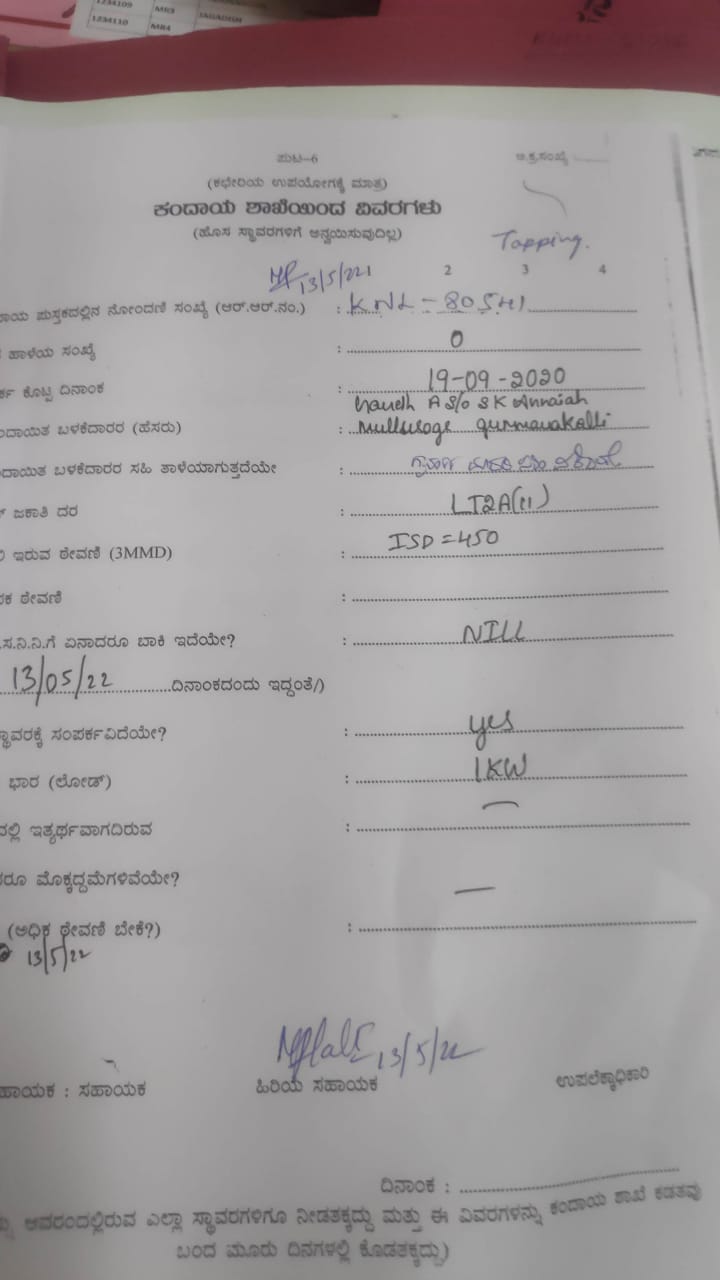 1234109 MR3 JAGADISH
1234110 MR4
ಪುಟ-6
(ಕಛೇರಿಯ ಉಪಯೋಗಕ್ಕೆ ಮಾತ್ರ)
ಕಂದಾಯ ಶಾಖೆಯಿಂದ ವಿವರಗಳು
(ಹೊಸ ಸ್ಥಾವರಗಳಿಗೆ ಅನ್ವಯಿಸುವುದಿಲ್ಲ)
Tapping.
13/5/22 1 2 3 4
ಾಯ ಪುಸ್ತಕದಲ್ಲಿನ ನೋಂದಣಿ ಸಂಖ್ಯೆ (ಆರ್.ಆರ್.ನಂ.) : KNL-80541
ಹಾಳೆಯ ಸಂಖ್ಯೆ : 0
ಕೊಟ್ಟ ದಿನಾಂಕ : 19-09-2020
A S/o S K Annaiah
ಂದಾಯಿತ ಬಳಕೆದಾರರ (ಹೆಸರು) : Mullusoge
ಂದಾಯಿತ ಬಳಕೆದಾರರ ಸಹಿ ತಾಳೆಯಾಗುತ್ತದೆಯೇ :
ಜಕಾತಿ ದರ : LT2A(ii)
ಇರುವ ಠೇವಣಿ (3MMD) : ISD=450
ಠೇವಣಿ :
.ಸ.ನಿ.ನಿ.ಗೆ ಏನಾದರೂ ಬಾಕಿ ಇದೆಯೇ? : NILL
13/05/22 ದಿನಾಂಕದಂದು ಇದ್ದಂತೆ/)
ಸ್ಥಾವರಕ್ಕೆ ಸಂಪರ್ಕವಿದೆಯೇ? : yes
ಭಾರ (ಲೋಡ್) : 1KW
ದಲ್ಲಿ ಇತ್ಯರ್ಥವಾಗದಿರುವ : —
ರೂ ಮೊಕ್ಕದ್ದಮೆಗಳಿವೆಯೇ? —
(ಅಧಿಕ ಠೇವಣಿ ಬೇಕೆ?) :
13/5/22
13/5/22
ಹಾಯಕ : ಸಹಾಯಕ ಹಿರಿಯ ಸಹಾಯಕ ಉಪಲೆಕ್ಕಾಧಿಕಾರಿ
ದಿನಾಂಕ :
ಅವರಂದಲ್ಲಿರುವ ಎಲ್ಲಾ ಸ್ಥಾವರಗಳಿಗೂ ನೀಡತಕ್ಕದ್ದು ಮತ್ತು ಈ ವಿವರಗಳನ್ನು ಕಂದಾಯ ಶಾಖೆ ಕಡತವು
ಬಂದ ಮೂರು ದಿನಗಳಲ್ಲಿ ಕೊಡತಕ್ಕದ್ದು)